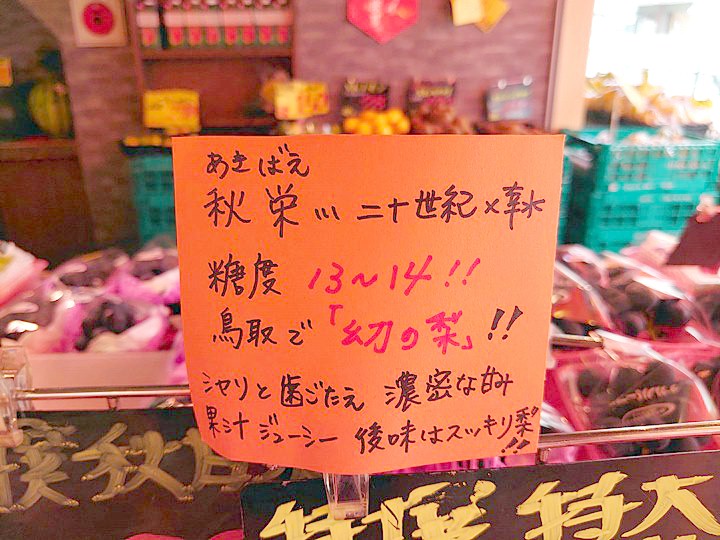 あきばえ
秋栄... 二十世紀×幸水
糖度 13~14!!
鳥取で「幻の梨」!!
シャリと歯ごたえ 濃密な甘み
果汁ジューシー 後味はスッキリ梨!!
特大